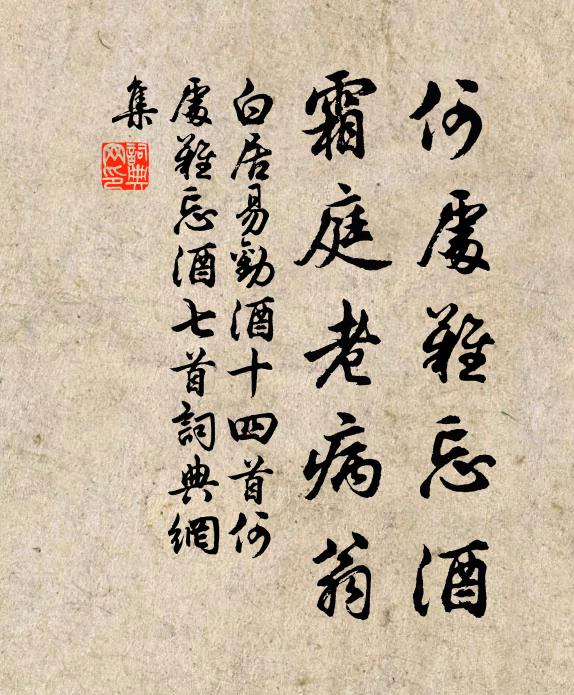 何處難忘酒
霜庭老病翁
白居易勸酒十四首何
處難忘酒七首詞典網
集
詞典
网印